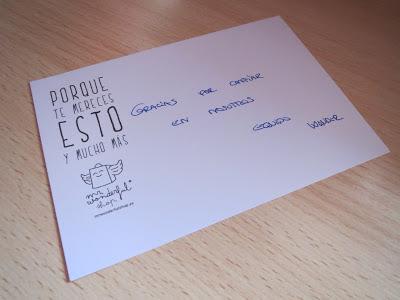 PORQUE
TE MERECES
ESTO
Y MUCHO MÁS
mr.
wonderful*
shop
mrwonderfulshop.es
GRACIAS POR CONFIAR
EN NOSOTROS
EQUIPO WONDER